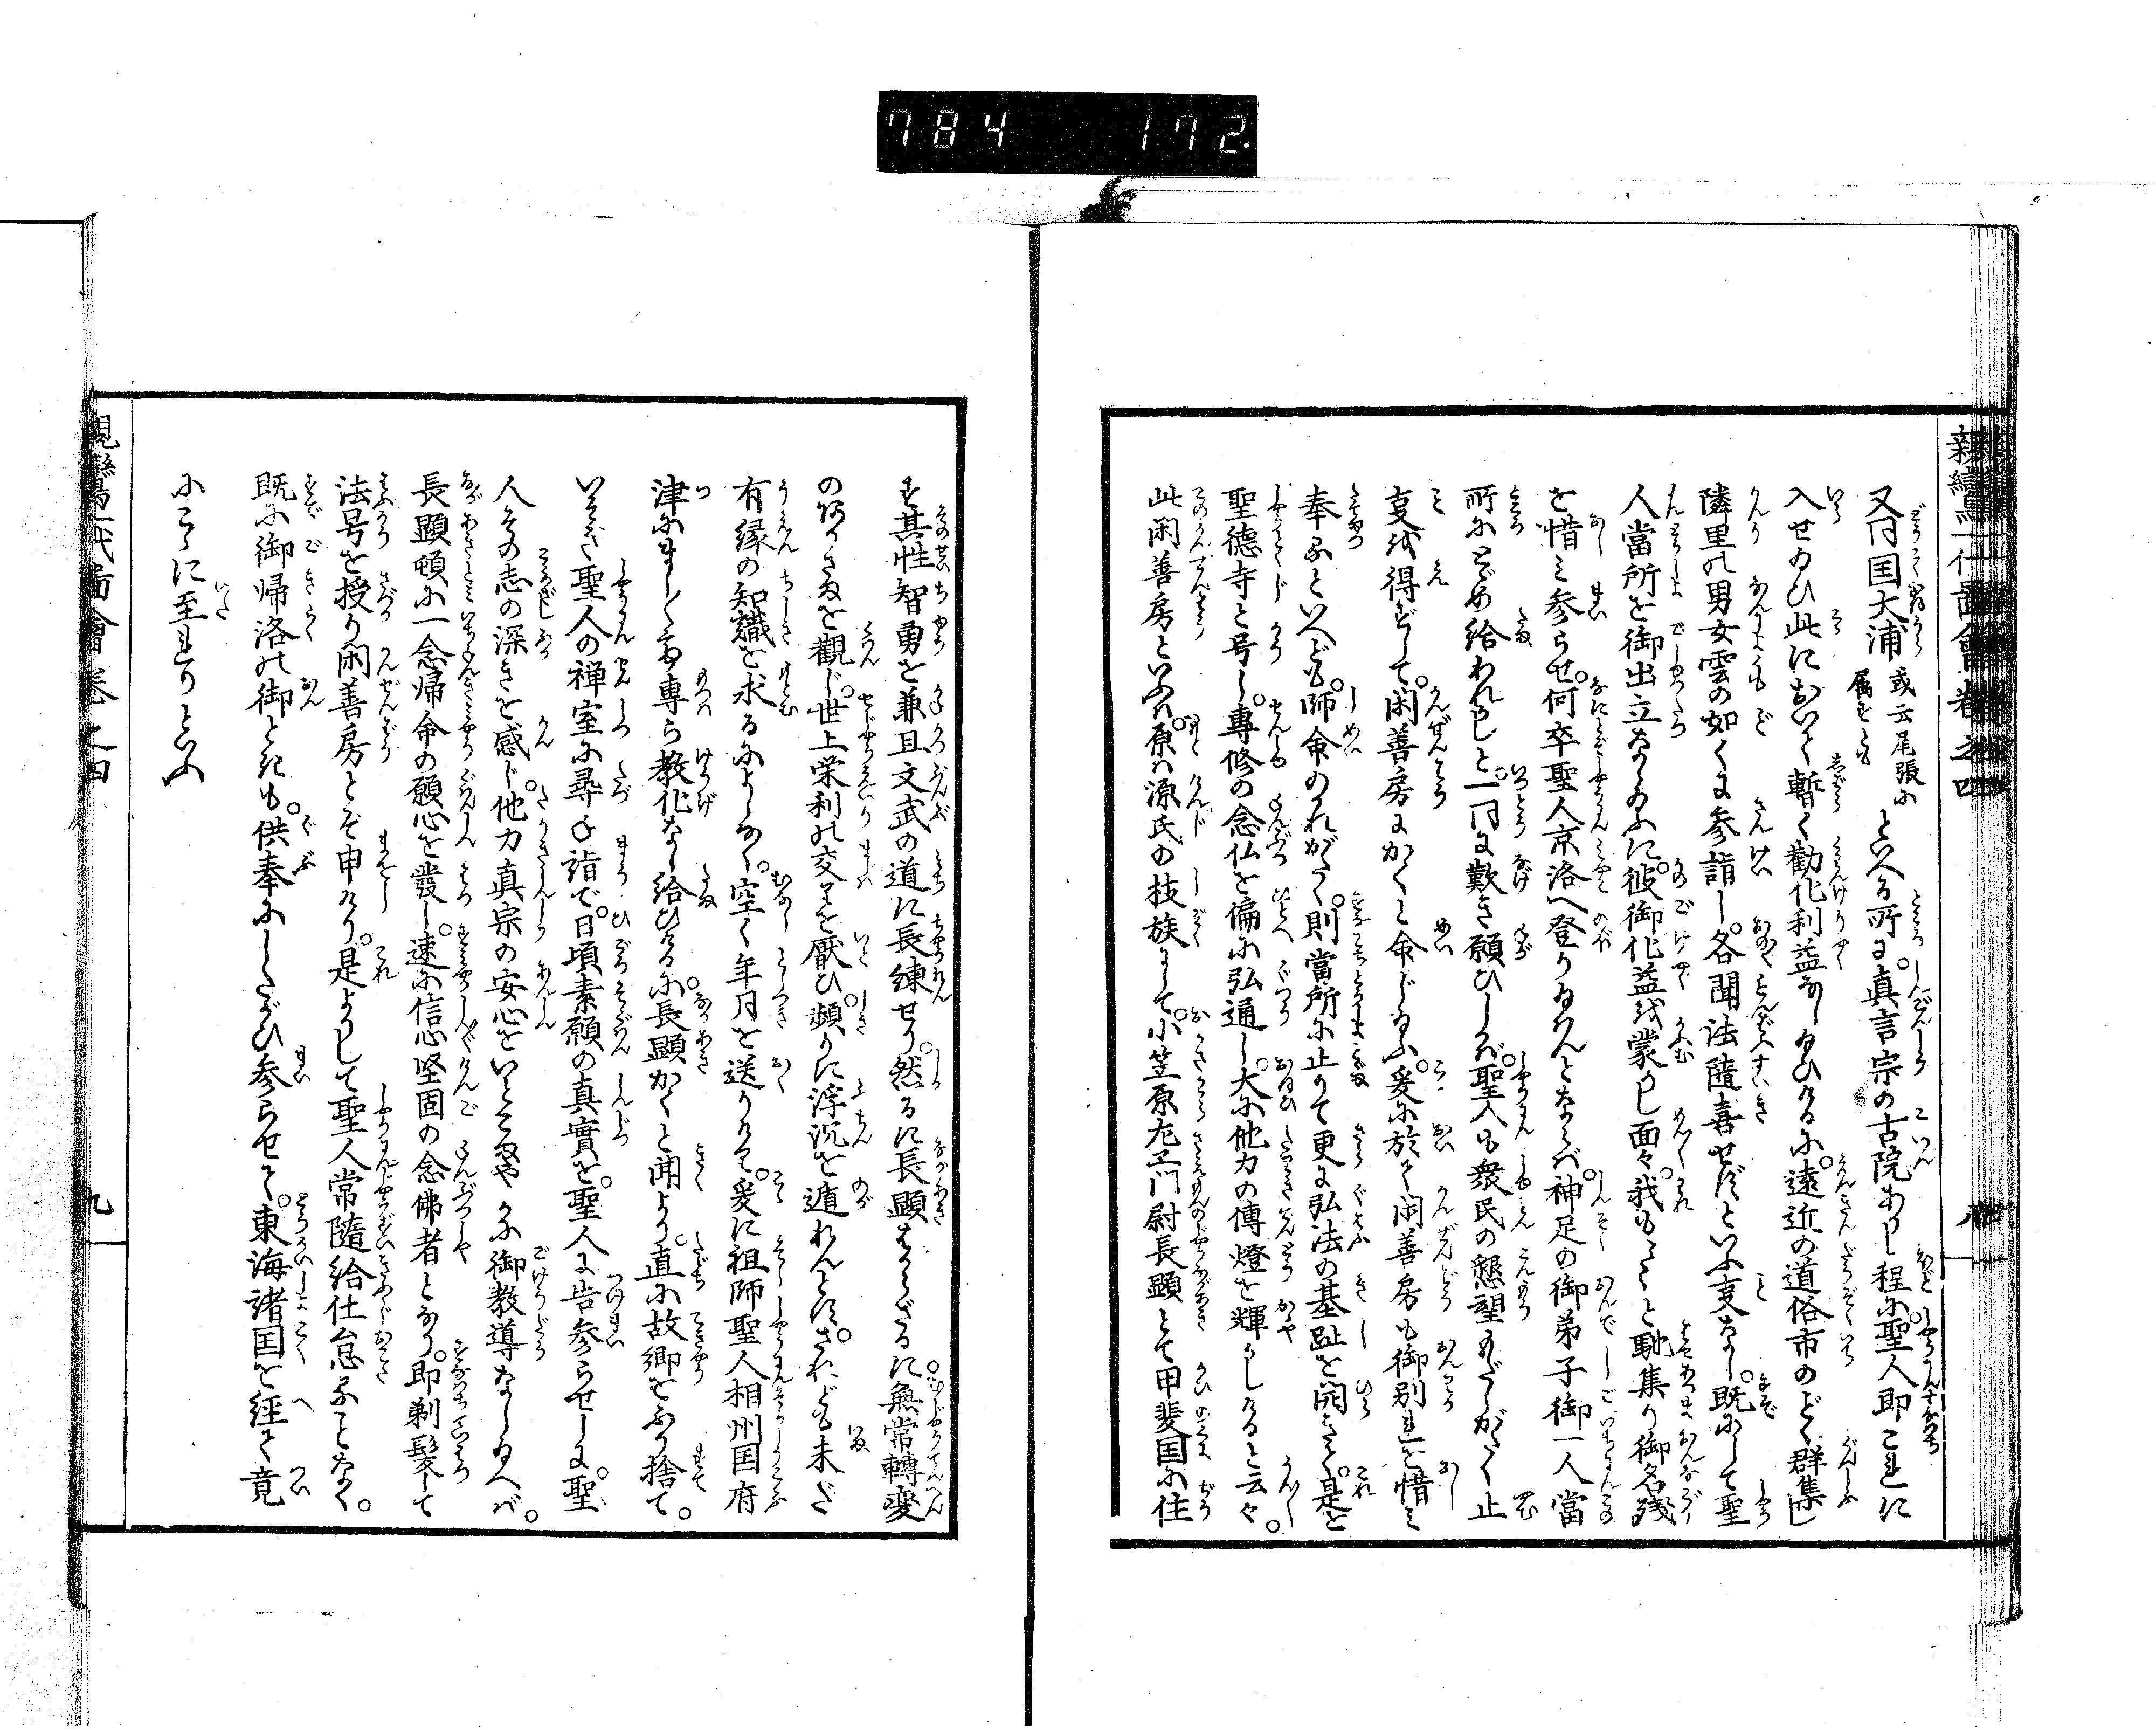 784 172
親鸞一代図會 巻之四
又同国大浦 或云尾張に属すとも といへる所に。真言宗の古院ありし程に。聖人即これに
入せ給ひ此において暫く勧化利益なし給ひけるに。遠近の道俗市のごとく群集し
隣里の男女雲の如くに参詣し。各聞法随喜せずといふ事なし。既にして聖
人當所を御出立なし給ふに。彼御化益を蒙りし面々。我も〳〵と馳集り御名残
を惜み参らせ。何卒聖人京洛へ登り給はんとならバ。神足の御弟子御一人當
所にとゞめ給われかしと。一同に歎き願ひしかバ。聖人も衆民の懇望もだしがたく止
事を得ずして。閑善房にかくと命じ給ふ。爰に於て閑善房も御別れを惜ミ
奉ると
いへども。師命のれがたく。則當所に止りて更に弘法の基趾を開きて。是を
聖徳寺と号し。専修の念仏を偏に弘通し。大に他力の傳燈を輝かしけると云々。
此閑善房といふハ。原ハ源氏の枝族にして。小笠原左衛門尉長顕とて甲斐国に住
す其性智勇を兼且文武の道に長練せり。然るに長顕はからざるに。無常轉変
のありさまを觀じ。世上栄利の交りを厭ひ。頻りに浮沉を遁れんとす。されども未だ
有縁の知識を求るによしなく。空く年月を送りけるに。爰に祖師聖人相州国府
津にまし〳〵て専ら教化なし給ひけるに。長顕かくと聞より。直に故郷をふり捨て。
いそぎ聖人の禅室に尋ね詣で。日頃素願の真實を。聖人に告参らせしに。聖
人その志の深きを感じ。他力真宗の安心をいとこまやかに御教導なし給へバ。
長顕頓に一念帰命の願心を發し。速に信心堅固の念佛者となり。即剃髪して
法号を授り閑善房とぞ申けり。是よりして聖人常随給仕怠ることなく。
既に御帰洛の御ときも。供奉にしたがひ参らせて。東海諸国を経て竟
にこゝに至れりといふ
親鸞一代図會 巻之四 九